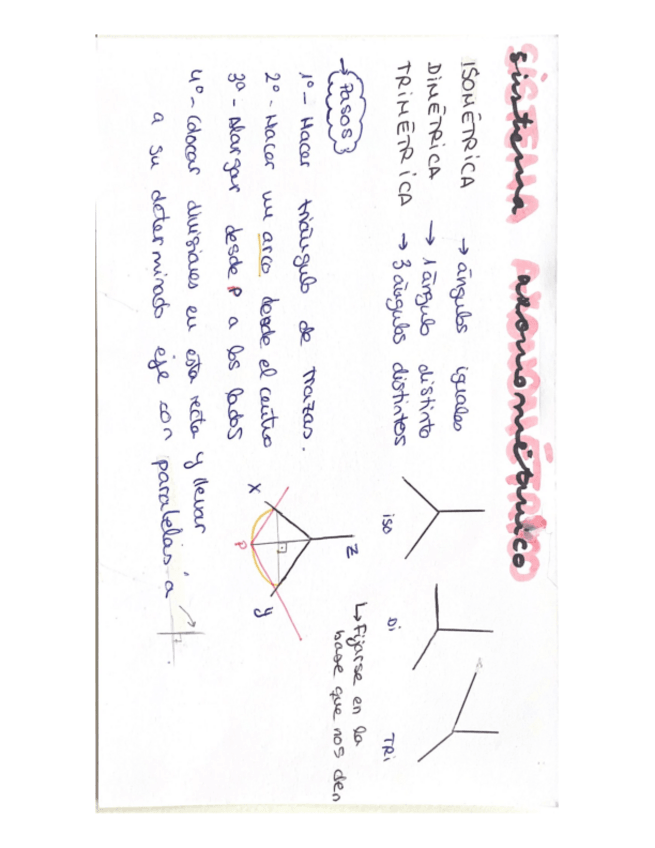 Sistema axonométrico
ISOMÉTRICA → ángulos iguales
DIMÉTRICA → 1 ángulo distinto
TRIMÉTRICA → 3 ángulos distintos
iso
Di
TRi
↳ Fijarse en la
base que nos den
→ Pasos
1º - Hacer triángulo de trazas.
2º - Hacer un arco desde el centro
3º - Alargar desde P a los lados
4º - Colocar divisiones en esta recta y llevar
a su determinado eje con paralelas a
X
Z
P
y